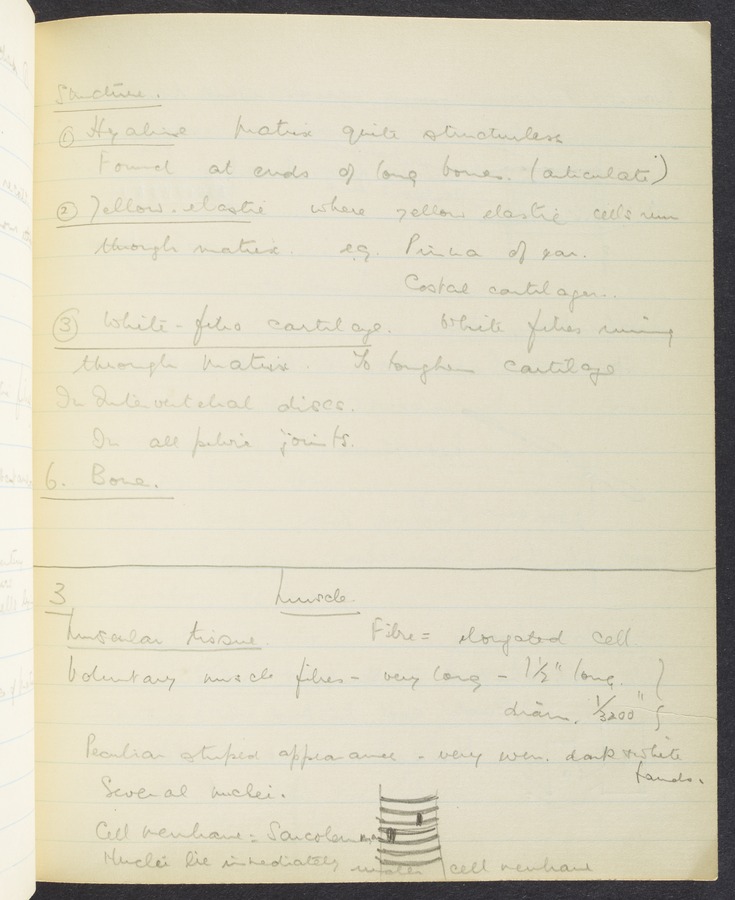 Structure.
① Hyaline Matrix quite structureless
Found at ends of long bones. (articulate)
② Yellow. elastic where yellow elastic cells run
through matrix. eg. Pinna of ear.
Costal cartilages..
③ White-fibro cartilage. White fibres running
through matrix. To toughen cartilage
In Intervertebral discs.
In all pelvic joints.
6. Bone.
3 Muscle.
Muscular tissue. Fibre = elongated cell.
Voluntary muscle fibres - very long - 1½" long. }
diam. 1/3200" }
Peculiar striped appearance - very even. dark & white
bands.
Several nuclei.
Cell membrane = Sarcolemma
Nuclei lie immediately under cell membrane